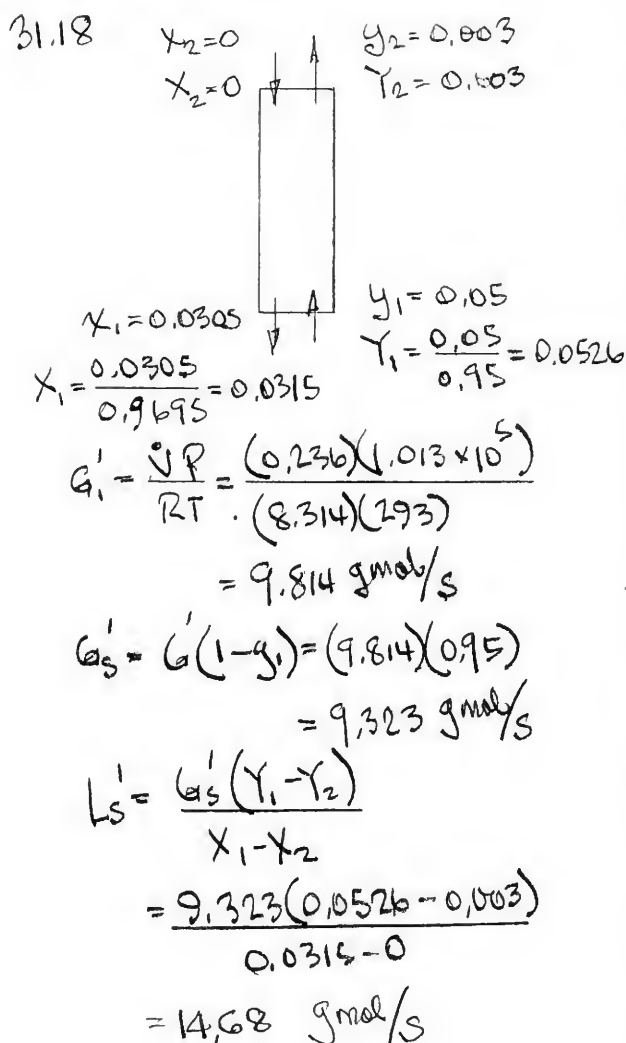 31.18
x₂=0
y₂= 0.003
X₂=0
Y₂= 0.003
x₁=0.0305
y₁= 0.05
X₁= 0.0305/0.9695 = 0.0315
Y₁= 0.05/0.95 = 0.0526
G₁' = V̇P/RT = (0.236)(1.013×10⁵)/(8.314)(293)
= 9.814 gmol/s
Gs' = G'(1-y₁)=(9.814)(0.95)
= 9.323 gmol/s
Ls' = Gs'(Y₁-Y₂)/X₁-X₂
= 9.323(0.0526-0.003)/0.0315-0
= 14.68 gmol/s